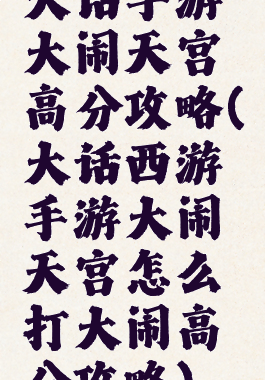 大话手游
大闹天宫
高分攻略(
大话西游
手游大闹
天宫怎么
打大闹高
分攻略)